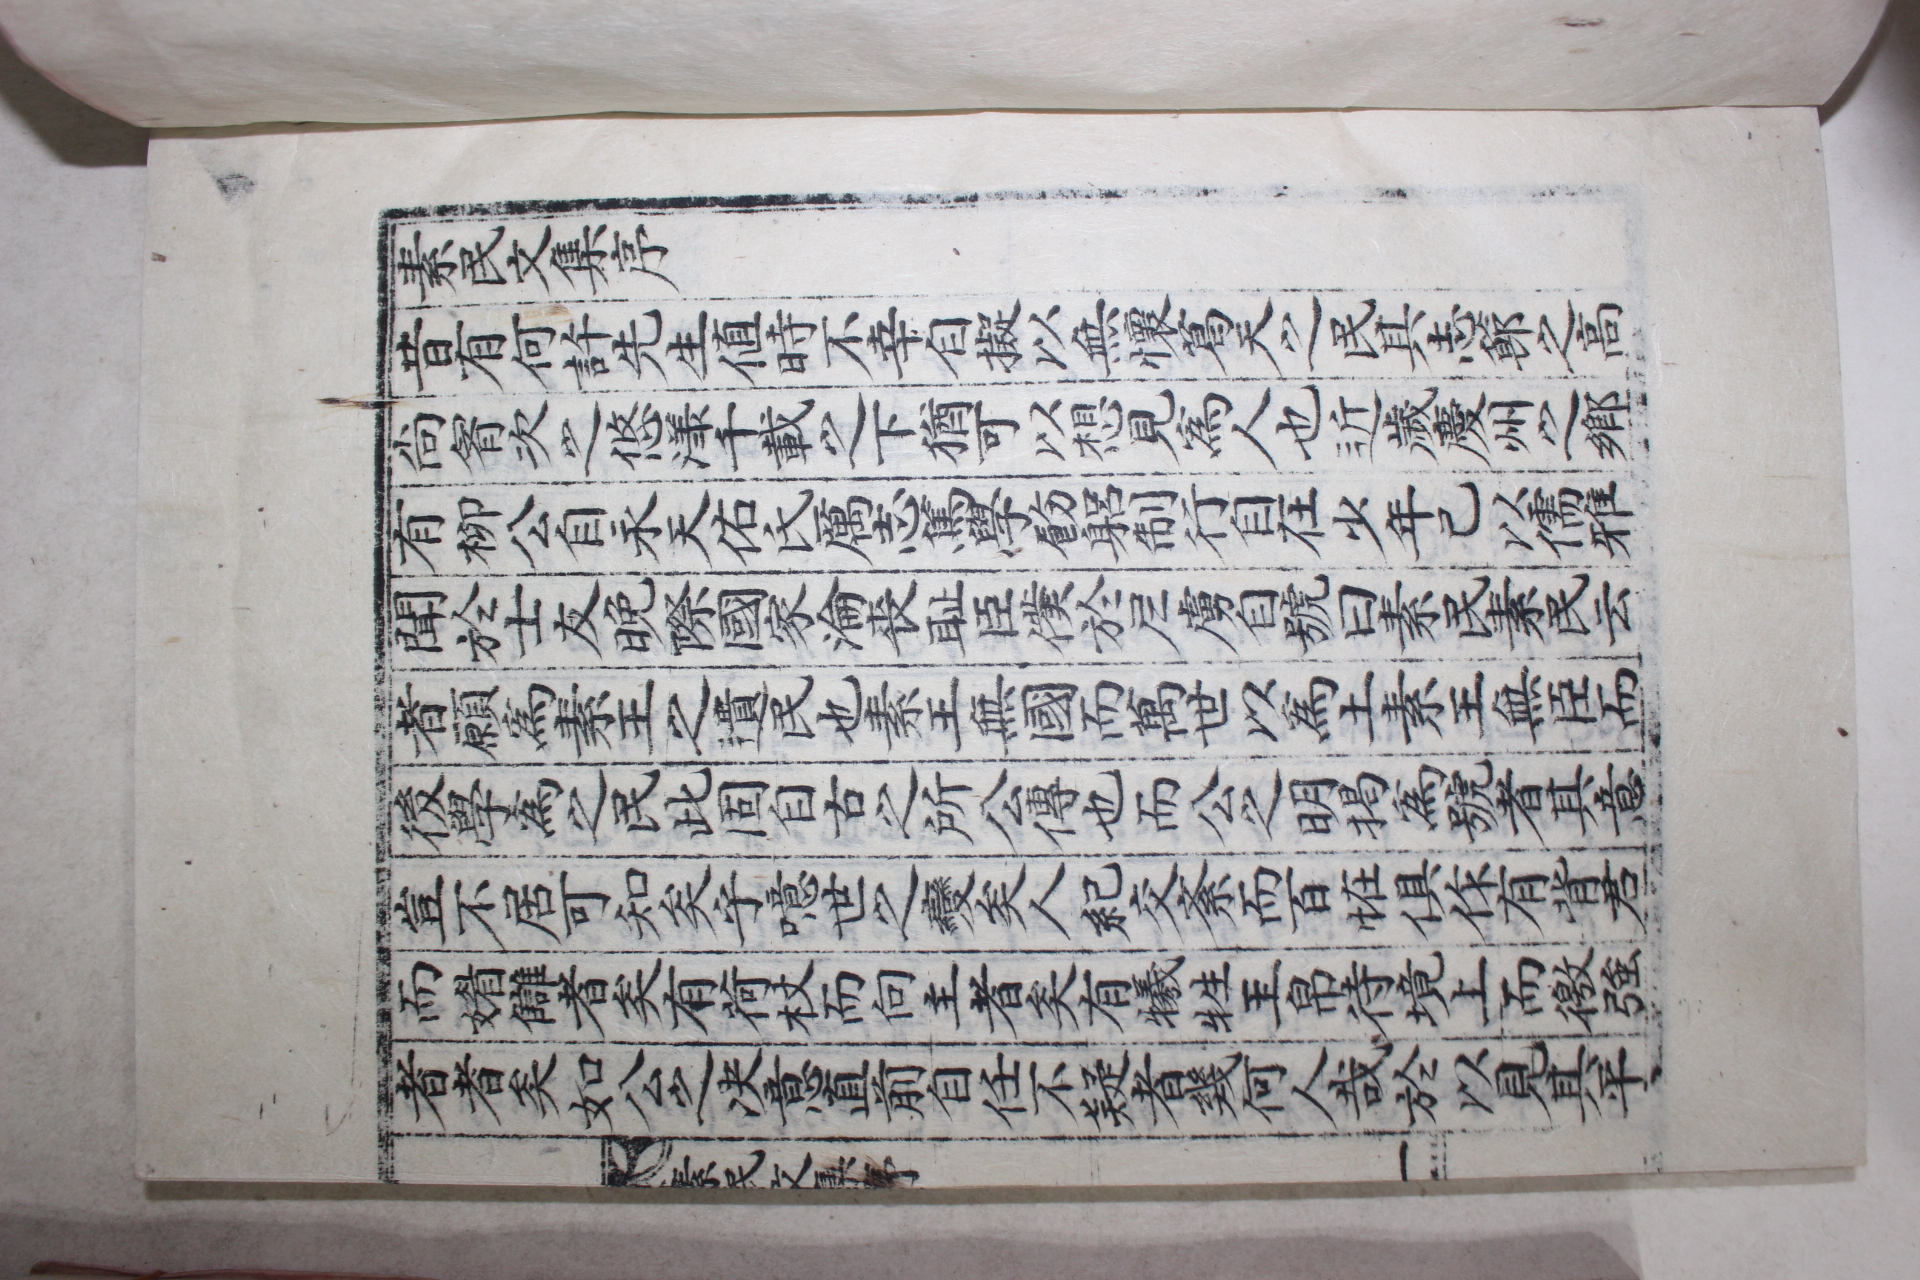 素民文集序
昔有何許先生値時不幸自擬以無懷葛天之民其志節之高
尚胷次之悠漾千載之下猶可以想見爲人也近歲慶州之鄉
有柳公自永天佑氏厲志篤學飭躬制行自在少年已以儒雅
聞於士友晩際國家淪喪耻臣僕於戹虜自號曰素民素民云
者願爲素王之遺民也素王無國而萬世以爲土素王無臣而
後學爲之民此固自古之所公傳也而公之明揭爲號者其意
豈不居可知矣乎噫世之變矣人紀交紊而百恠俱作有背君
而媚讎者矣有荷杖而向主者矣有犧牲玉帛待境上而徼強
者者矣如公之决意直前自任不疑者幾何人哉於以見其平
素民文集序
一